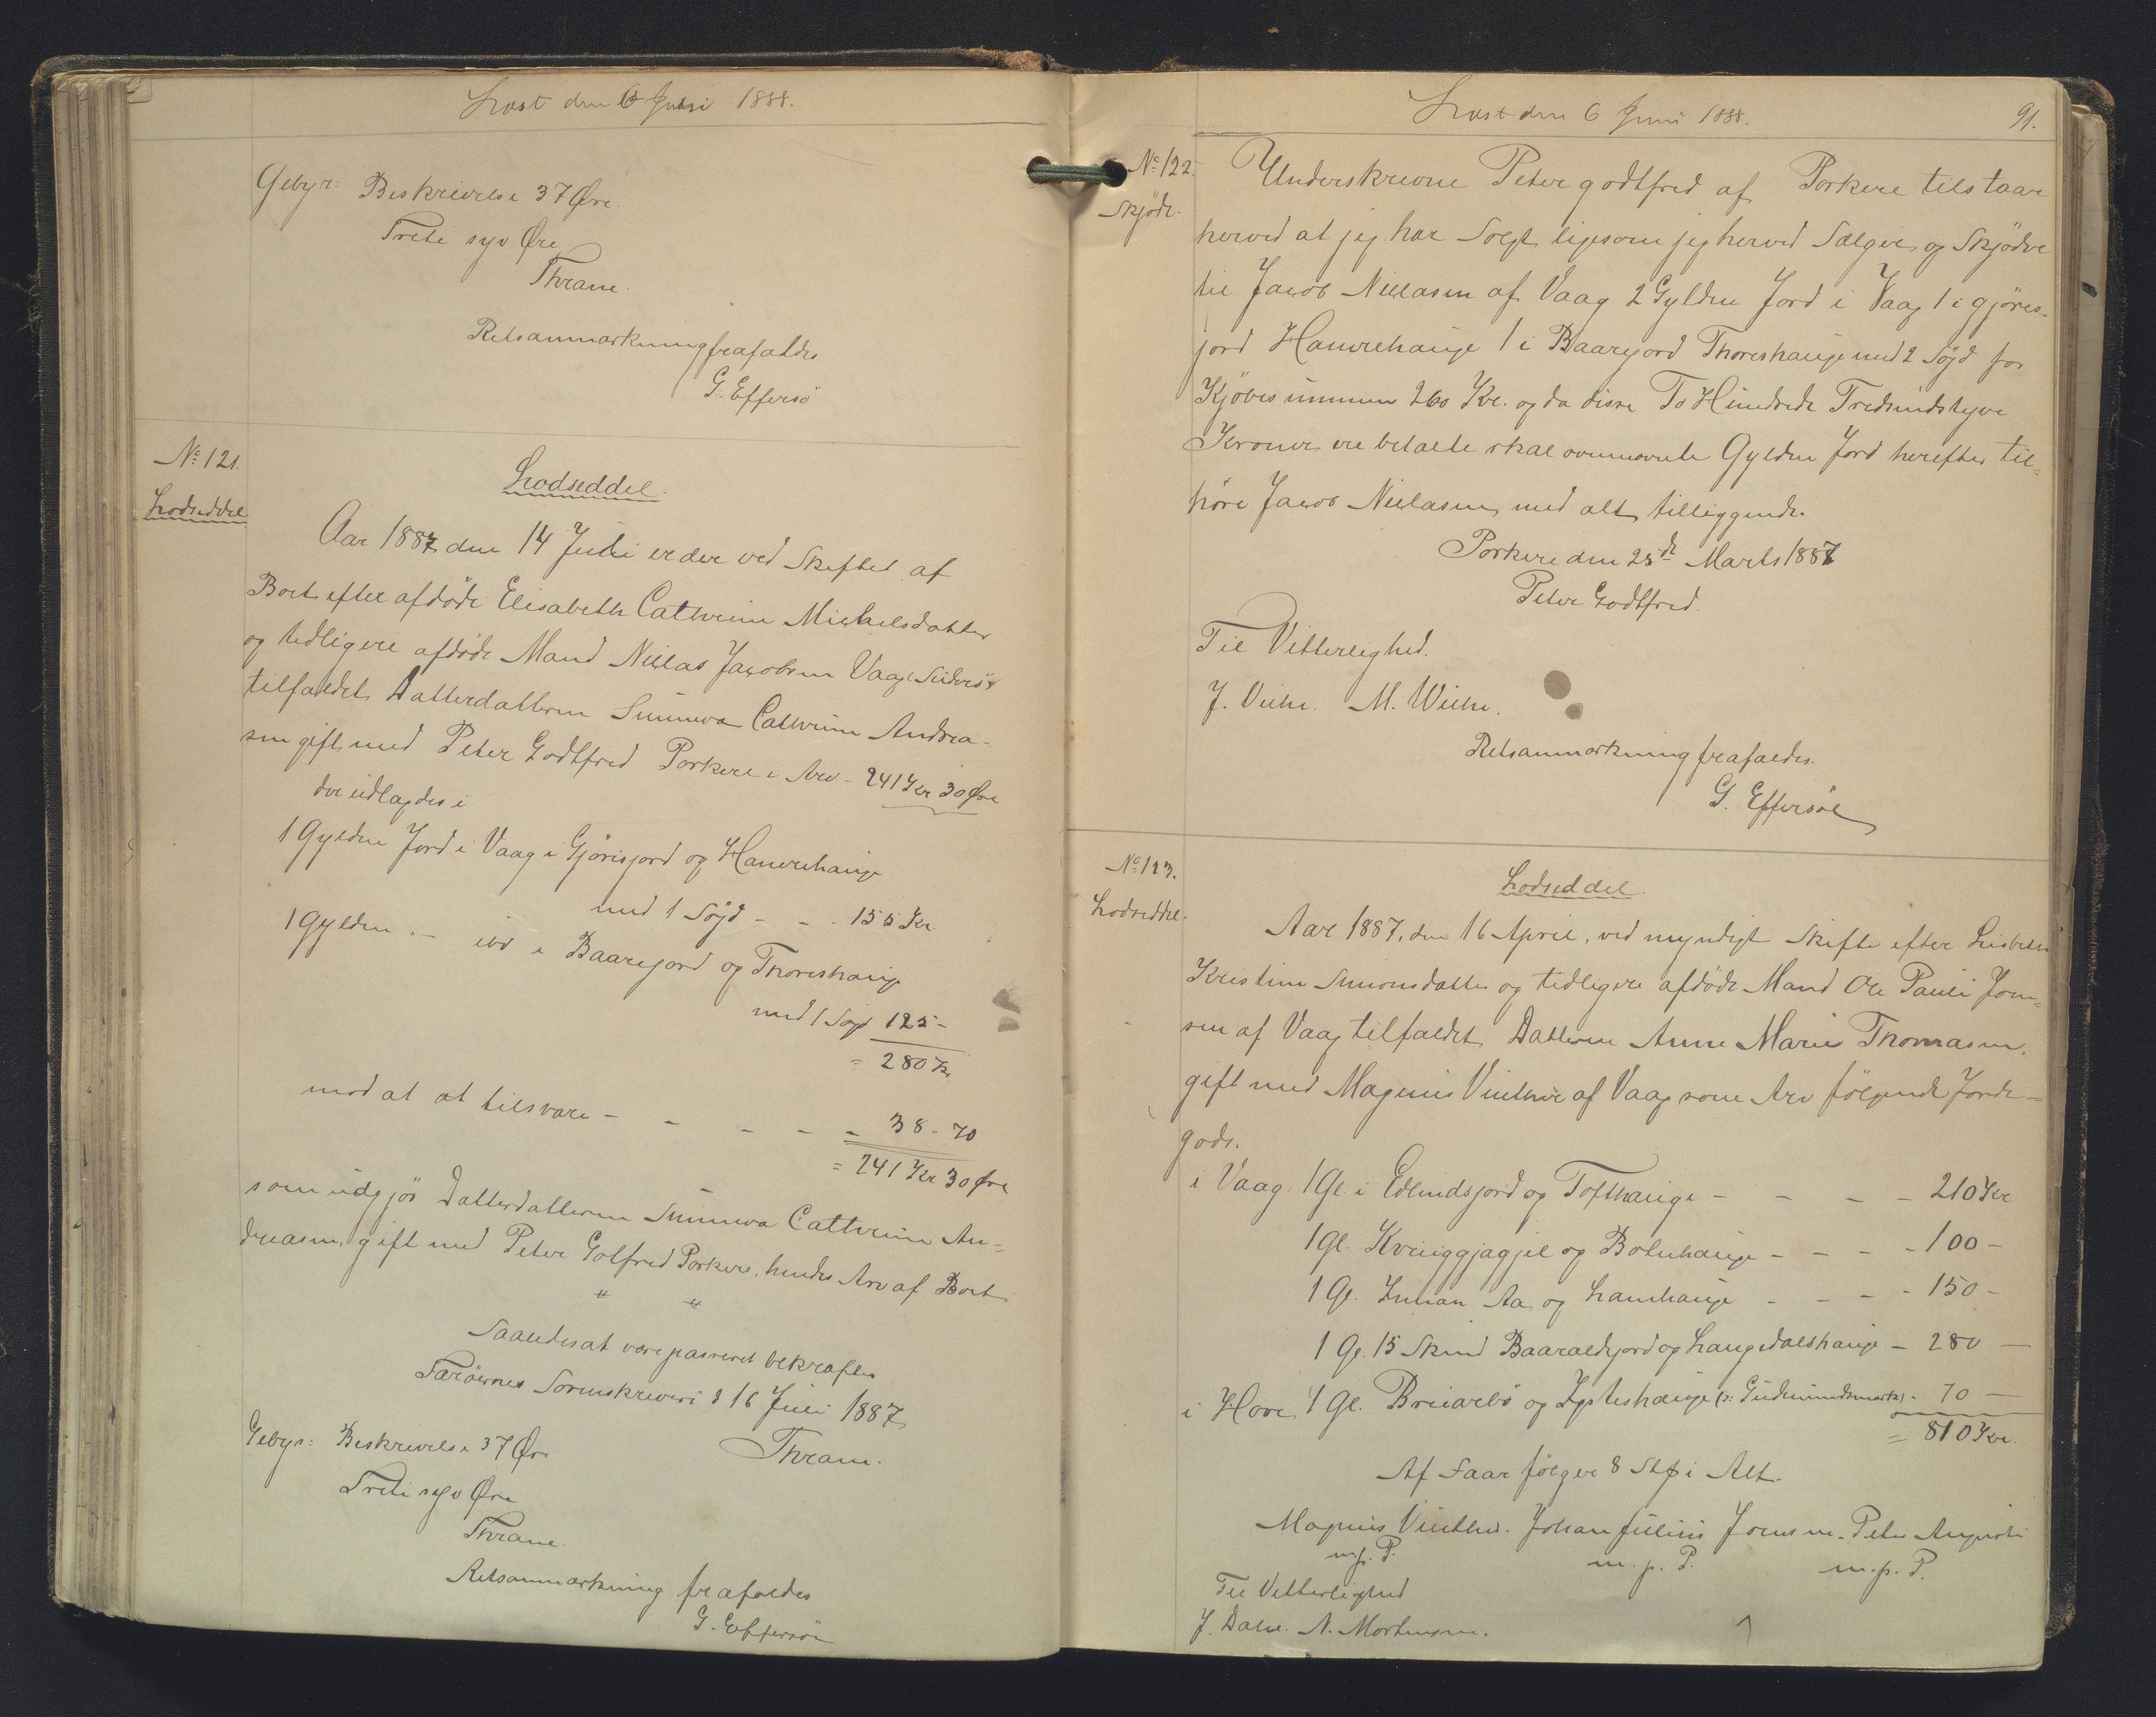 Læst den 6 Juni 1888.
Gebyr: Beskrivelse 37 Øre.
Treti syv Øre
Thrane.
Retsanmærkning frafaldes
G. Effersö
No 121.
Lodseddel
Lodseddel.
Aar 1887 den 14 Juli er der ved Skiftet af
Boet efter afdöde Elisabeth Cathrine Mickelsdatter
og tidligere afdöde Mand Niclas Jacobsen Vaag Suderö
tilfaldet Datterdatteren Sunneva Cathrine Andrea-
sen gift med Peter Godtfred Porkere i Arv - 241 Kr 30 Øre
der udlagdes i
1 Gylden Jord i Vaag i Gjörisjord og Hamrehauge
med 1 Söjd - - - 155 Kr.
1 Gylden - ibd i Baarejord og Thoreshauge
med 1 Söjd 125 -
= 280 Kr
mod at at tilsvare - - - - - 38 - 70
= 241 Kr 30 Øre
som udgjör Datterdatteren Sunneva Cathrine An-
dreasen, gift med Peter Golfred Porkere, hendes Arv af Boet
" "
Saaledes at være passeret bekræftes
Færöernes Sorenskriveri d 16 Juli 1887
Thrane.
Gebyr: Beskrivelse 37 Øre
Treti syv Øre
Thrane.
Retsanmærkning frafaldes
G. Effersöe
Læst den 6 Juni 1888.
91.
No 122.
Skjöde.
Underskrevne Peter godtfred af Porkere tilstaar
herved at jeg har Solgt ligesom jeg herved Sælger og Skjöder
til Jacob Niclasen af Vaag 2 Gylden Jord i Vaag 1 i gjöres-
jord Hamrehauge 1 i Baarejord Thoreshauge med 2 Söjd for
Kjöbesummen 260 Kr. og da disse To Hundrede Tredsindstyve
Kroner ere betalte skal ovennævnte Gylden Jord herefter til-
höre Jacob Niclasen med alt tilliggende.
Porkere den 25de Marts 1887
Peter Godtfred.
Til Vitterlighed.
J. Veihe. M. Weihe.
Retsanmærkning frafaldes.
G. Effersöe
No 123.
Lodseddel.
Lodseddel
Aar 1887, den 16 April, ved myndigt Skifte efter Lisbeth
Kristine Simonsdatter og tidligere afdöde Mand Ole Pauli Joen-
sen af Vaag tilfaldet Datteren Anne Marie Thomasen,
gift med Magnus Vinther af Vaag som Arv fölgende Jorde-
gods.
i Vaag. 1 Gl. i Edlindsjord og Tofthauge - - - - 210 Kr
1 Gl. Kruiggjagjil og Bolnhauge - - - - 100 -
1 Gl. Innan Aa og Lamhauge - - - - 150 -
1 Gl. 15 Skind Baaraldsjord og Langedalshauge - 280 -
i Hove 1 Gl. Bruiarbö og Lysteshauge (s: Gudmundsmark) - 70 -
= 810 Kr.
Af Faar fölger 8 Stk i Alt.
Magnus Vinther. Johan Julius Joensen. Peter Augusti
m. p. P. m. p. P. m. p. P.
Til Vitterlighed
J. Dahl. N. Mortensen.